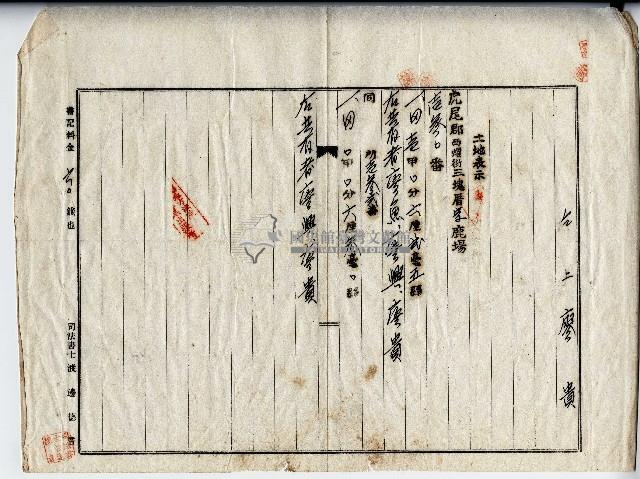 右上 廖 貴
土地表示
虎尾郡西螺街三塊厝字鹿場
壱参〇番
一、田 壱甲〇分六厘弐毫五絲
右共有者廖魚、廖興、廖貴
同 所壱参弐番
一、田 〇甲〇分六厘〇毫〇絲
右共有者廖興、廖貴
國立臺灣文學館
書記料金 七〇 錢也
司法書士 渡邊